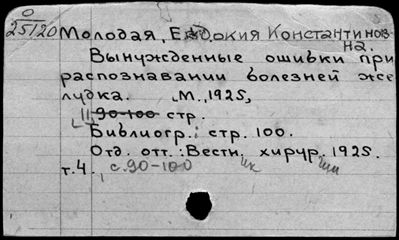 0
25120
Молодая, Евдокия Константинов-
на.
Вынужденные ошибки при
распознавании болезней же
лудка. М., 1925,
11 90-100 стр.
Библиогр.: стр. 100.
Отд. отт.: Вестн. хирур. 1925.
т.4., с.90-100